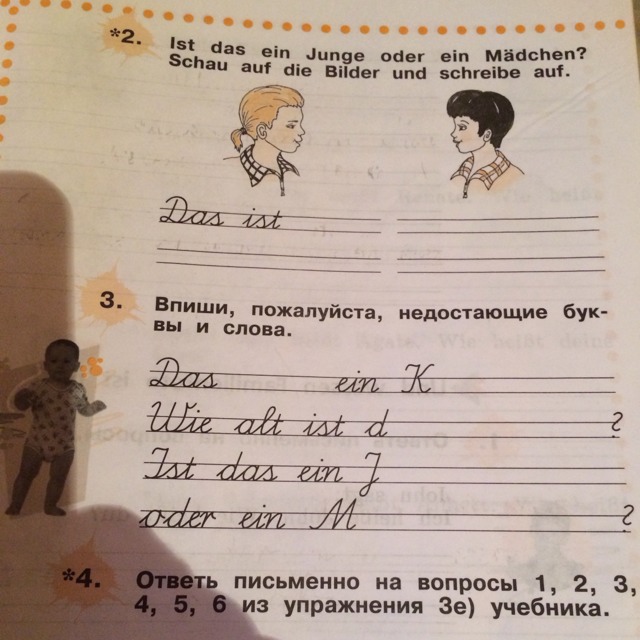 *2. Ist das ein Junge oder ein Mädchen?
Schau auf die Bilder und schreibe auf.
Das ist
3. Впиши, пожалуйста, недостающие бук-
вы и слова.
Das ein K
Wie alt ist d ?
Ist das ein J
oder ein M ?
*4. Ответь письменно на вопросы 1, 2, 3,
4, 5, 6 из упражнения 3e) учебника.